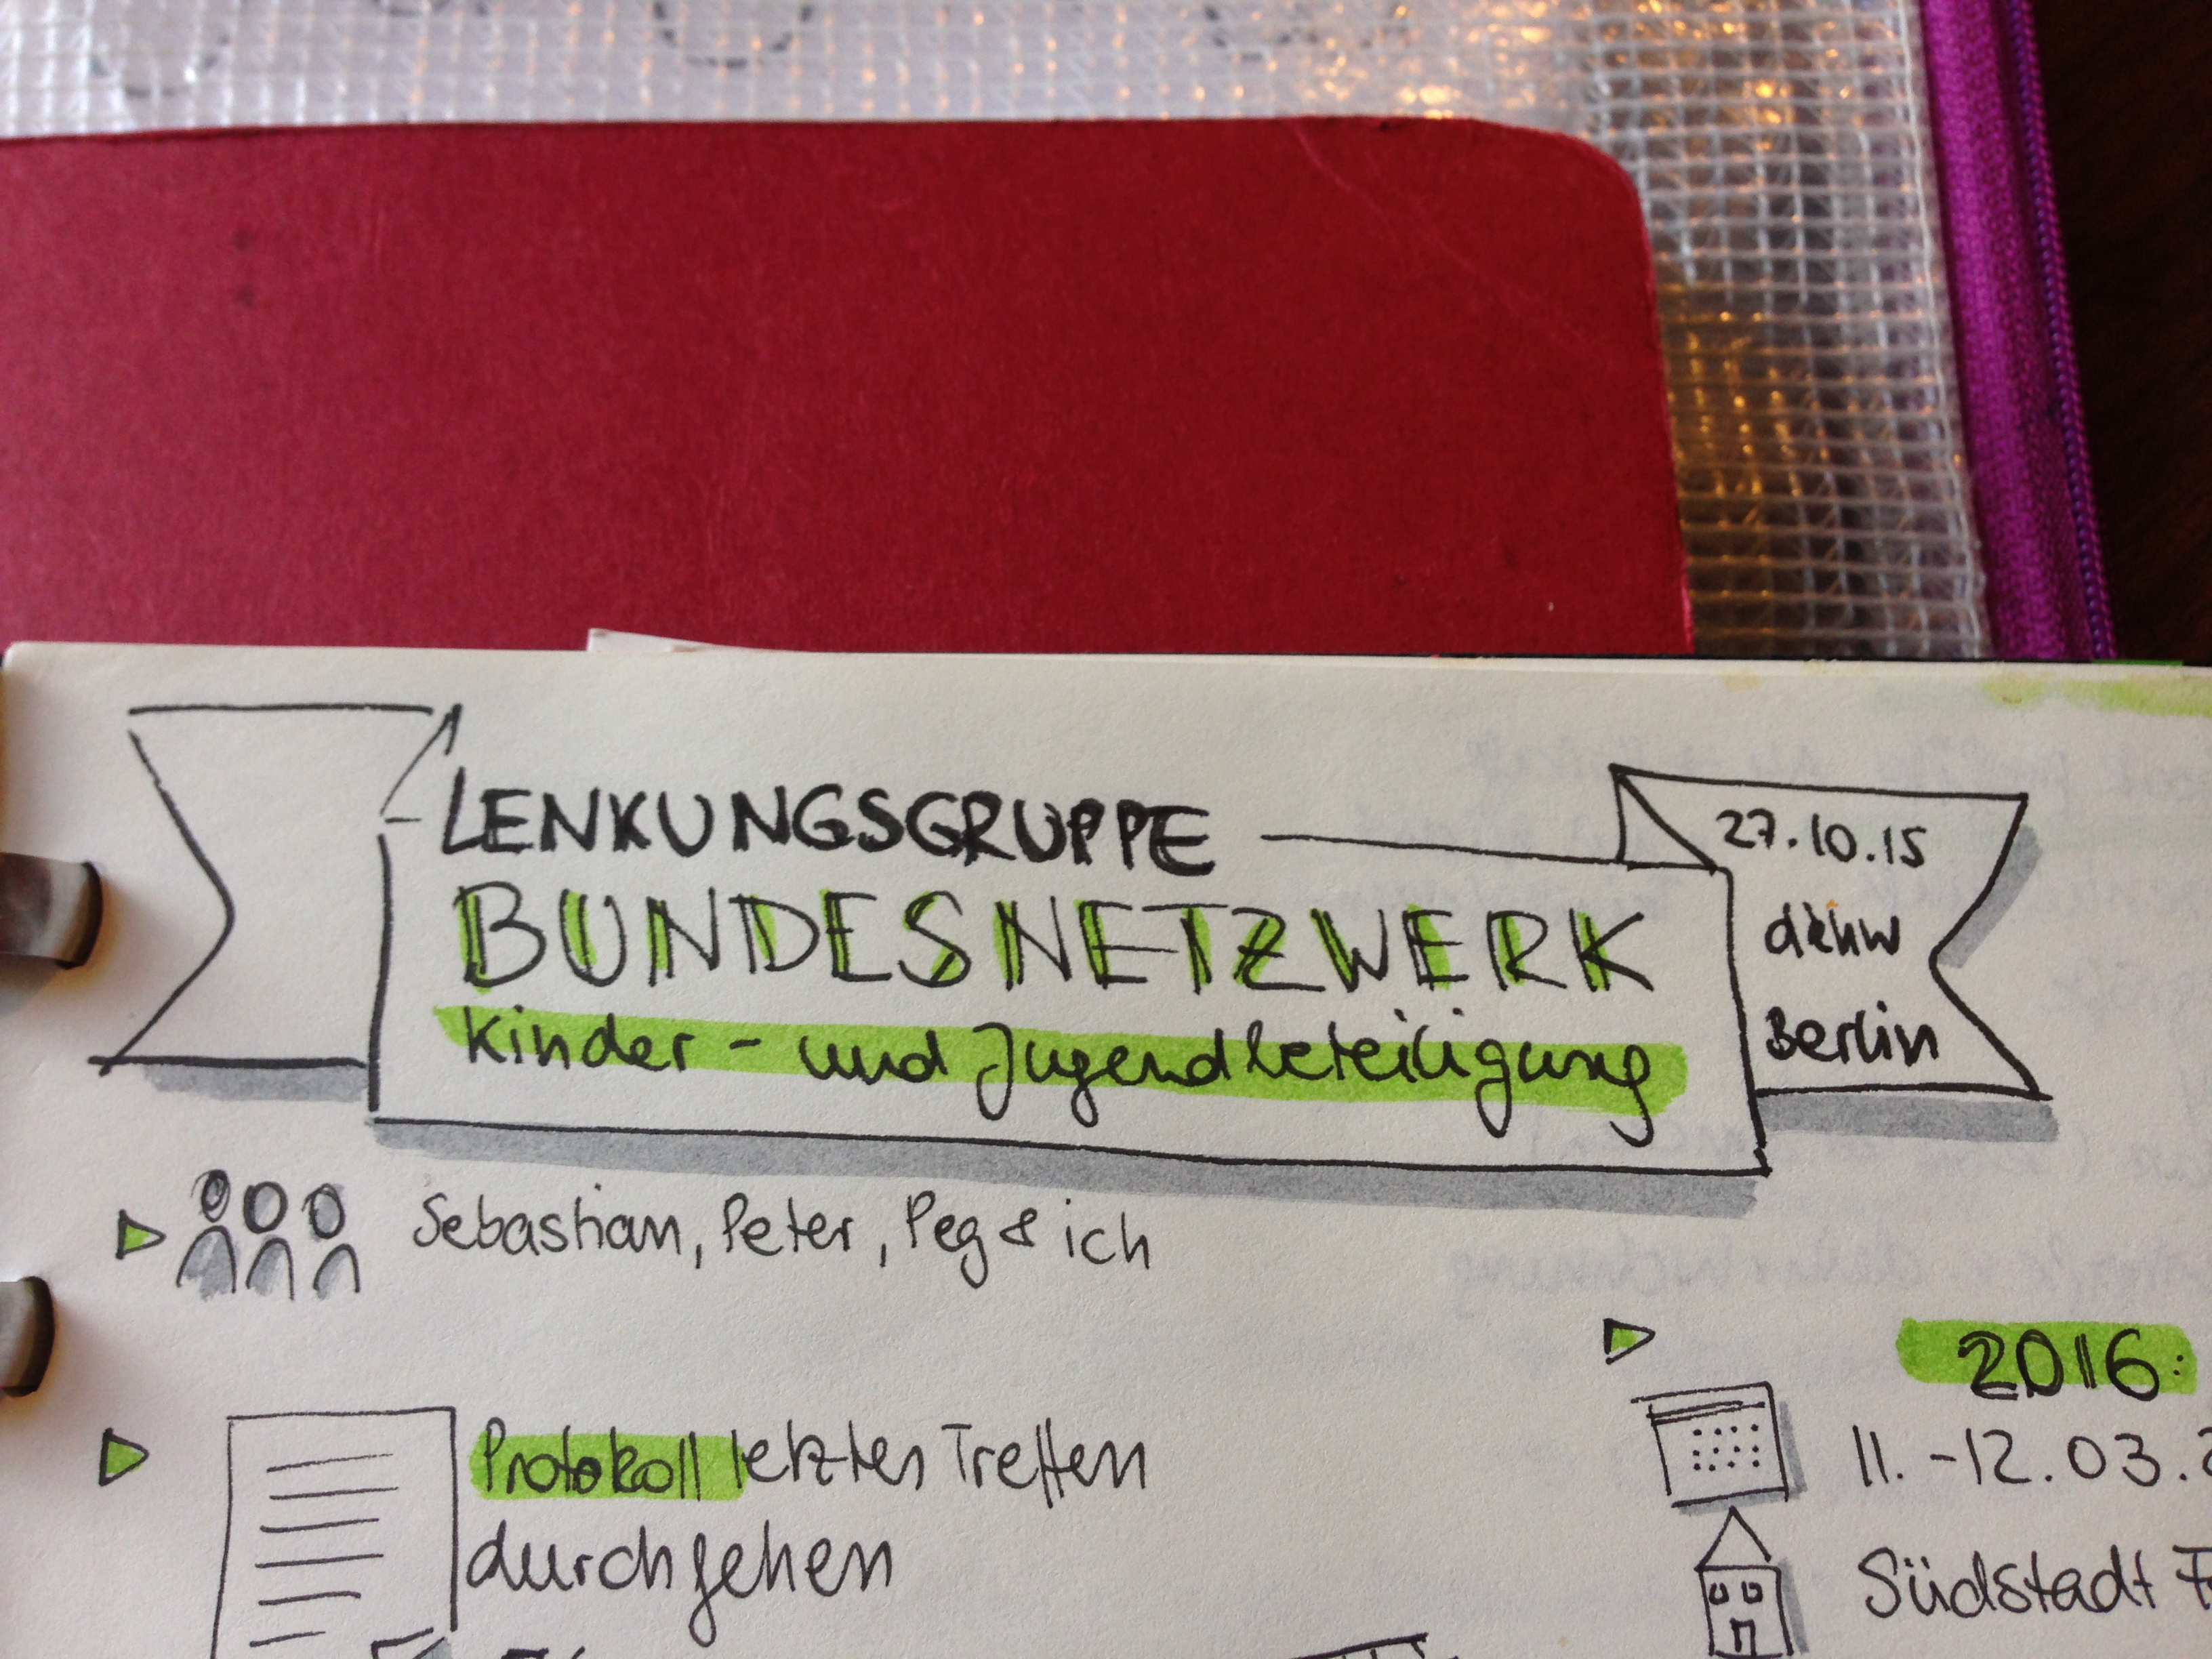 LENKUNGSGRUPPE
BUNDESNETZWERK
Kinder- und Jugendbeteiligung
27.10.15
dkhw
Berlin
Sebastian, Peter, Peg & ich
Protokoll letztes Treffen
durchgehen
2016:
11.-12.03.
Südstadt